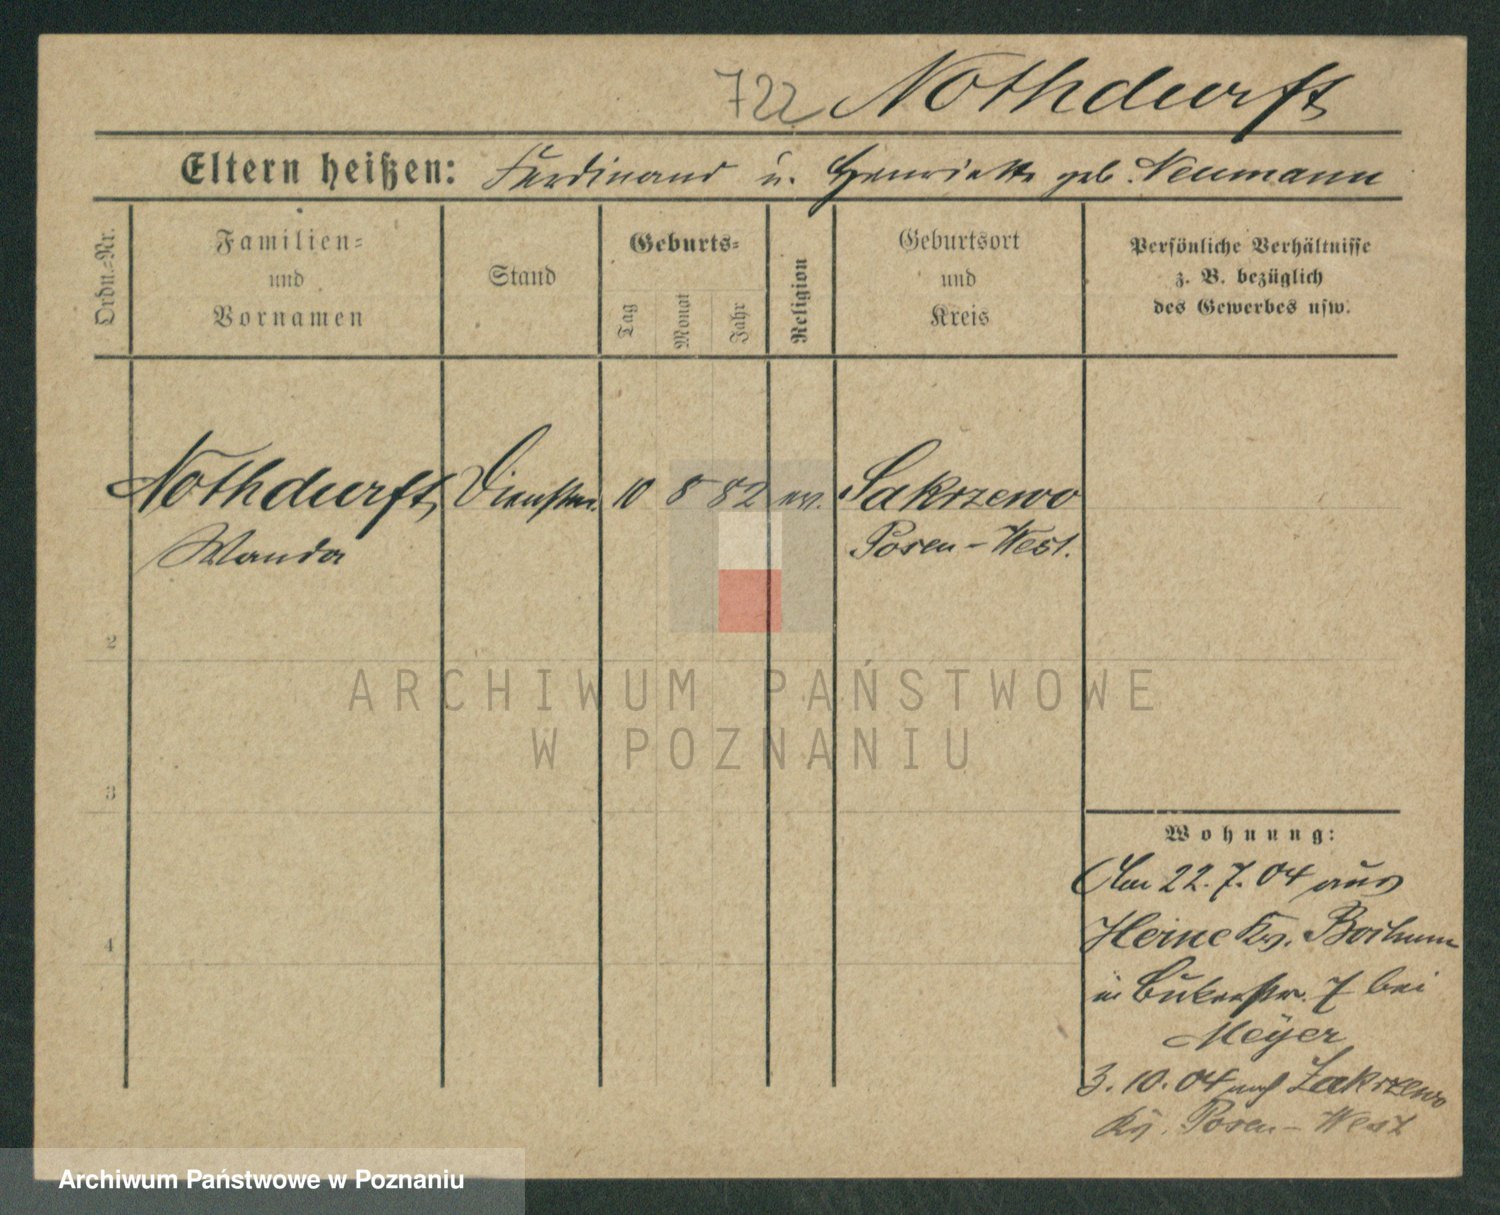 722 Nothdurft
Eltern heißen: Ferdinand u. Henriette geb. Neumann
Ordn.-Nr.
Familien-
und
Vornamen
Stand
Geburts-
Tag
Monat
Jahr
Religion
Geburtsort
und
Kreis
Persönliche Verhältnisse
z. B. bezüglich
des Gewerbes usw.
Nothdurft, Dienstm. 10 8 82 ev. Sakrzewo
Wanda
Posen-West.
2
3
4
ARCHIWUM PAŃSTWOWE
W POZNANIU
Wohnung:
Am 22. 7. 04 aus
Herne Kr. Bochum
in Bukerstr. 7 bei
Meÿer
3. 10. 04 nach Zakrzewo
Kr. Posen-West
Archiwum Państwowe w Poznaniu